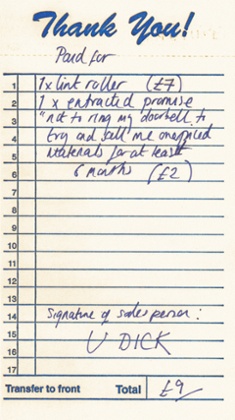 Thank You!
Paid for
1 1 x lint roller (£7)
2 1 x extracted promise
3 "not to ring my doorbell to
4 try and sell me
5 materials for at least
6 6 months (£2)
7
8
9
10
11
12
13
14 Signature of sales person :
15 U DICK
16
17
Transfer to front Total £9